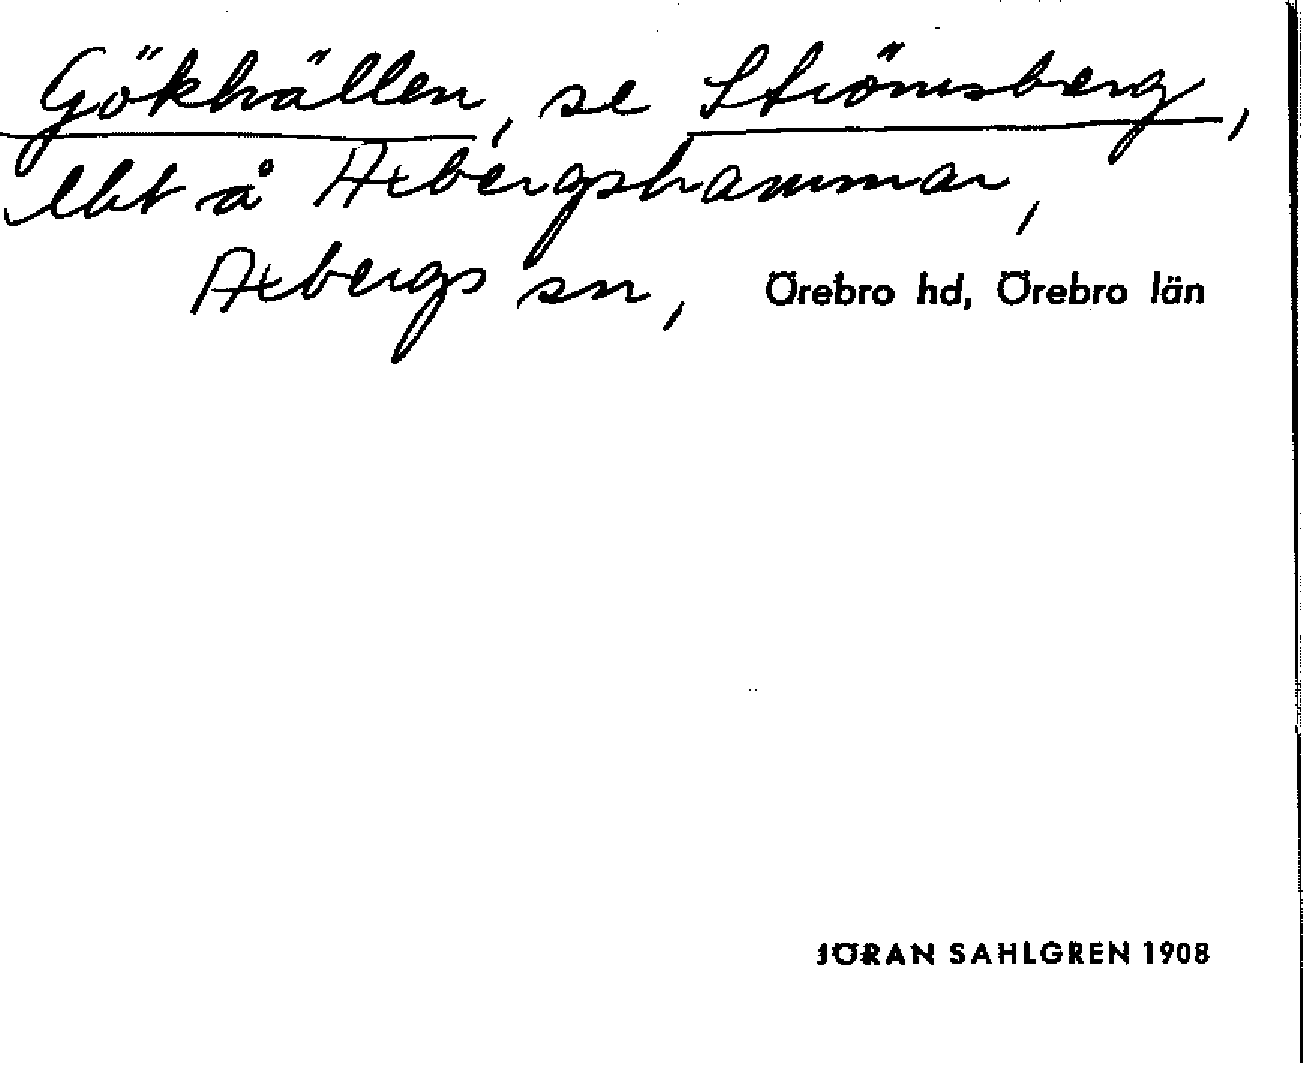 Gökhällen, se Strömsberg,
lht å Axbergshammar,
Axbergs sn, Örebro hd, Örebro län
JÖRAN SAHLGREN 1908